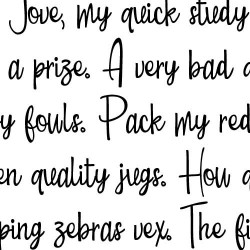 Jove, my quick study
a prize. A very bad
fouls. Pack my red
quality jugs. How
zebras vex. The